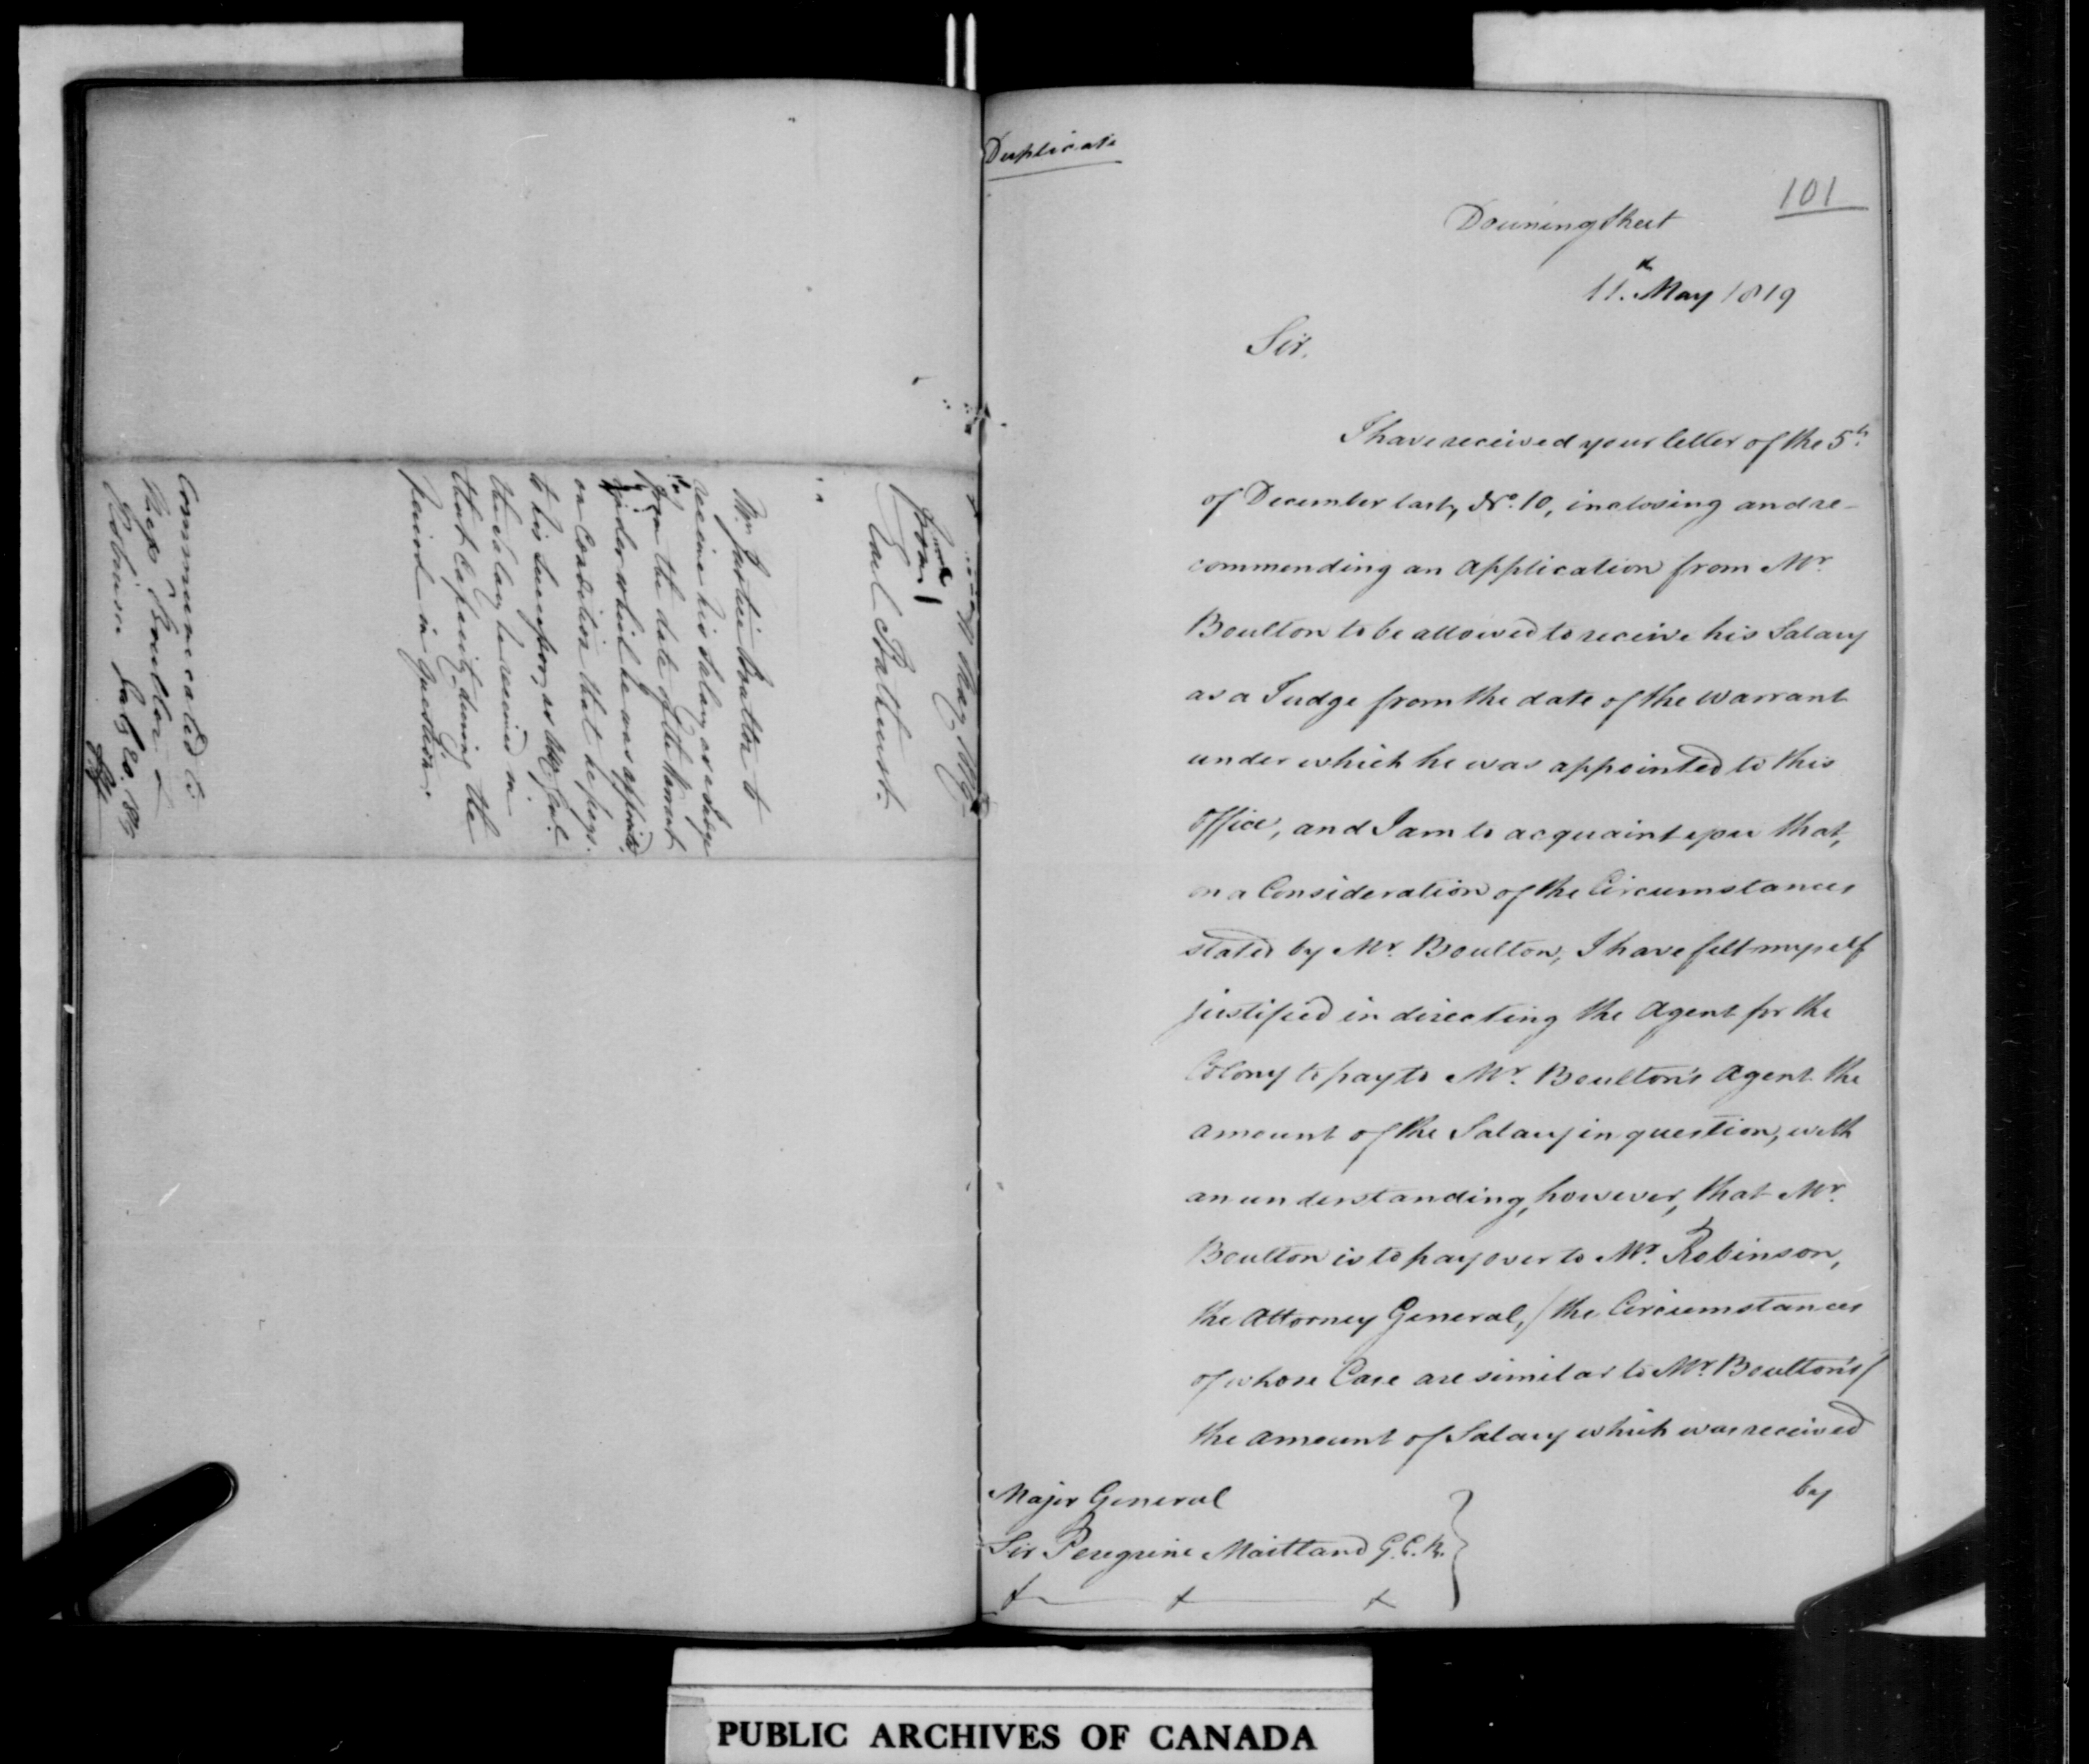 11 May 1819
from
Earl Bathurst.
Mr Justice Boulton to
receive his Salary as Judge
from the date of the Warrant
under which he was appointed
on Condition that he pays
to his Successor, as Atty Genl
the Salary he received in
that Capacity during the
period in question.
Communicated to
Messrs Boulton &
Robinson July 20. 1819
Duplicate
101
Downing Street
11th May 1819
Sir,
I have received your letter of the 5th
of December last, No. 10, inclosing and re-
commending an Application from Mr
Boulton to be allowed to receive his Salary
as a Judge from the date of the Warrant
under which he was appointed to this
Office, and I am to acquaint you that,
on a Consideration of the Circumstances
stated by Mr. Boulton, I have felt myself
justified in directing the Agent for the
Colony to pay to Mr. Boulton's Agent the
amount of the Salary in question, with
an understanding, however, that Mr.
Boulton is to pay over to Mr. Robinson,
the Attorney General, / the Circumstances
of whose Case are similar to Mr. Boulton's /
the amount of Salary which was received
by
Major General
Sir Peregrine Maitland G.C.B.
PUBLIC ARCHIVES OF CANADA